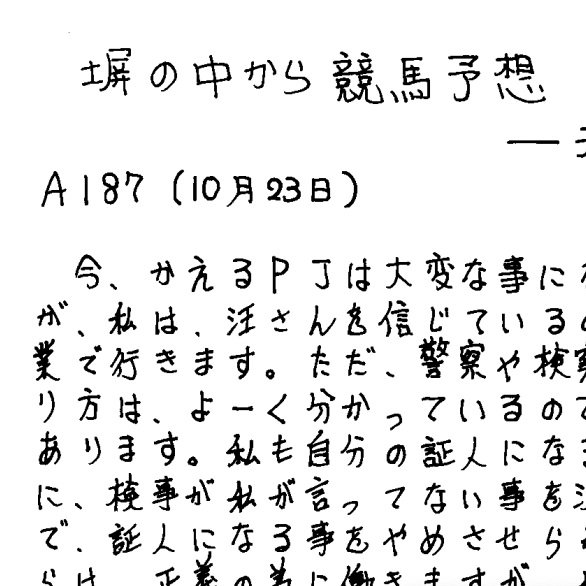 塀の中から競馬予想
一
A187(10月23日)
今、かえるPJは大変な事に
が、私は、汪さんを信じている
業で行きます。ただ、警察や検
り方は、よーく分かっているの
あります。私も自分の証人にな
に、検事が私が言ってない事を
で、証人になる事をやめさせら
らは、正義の為に働きますが、